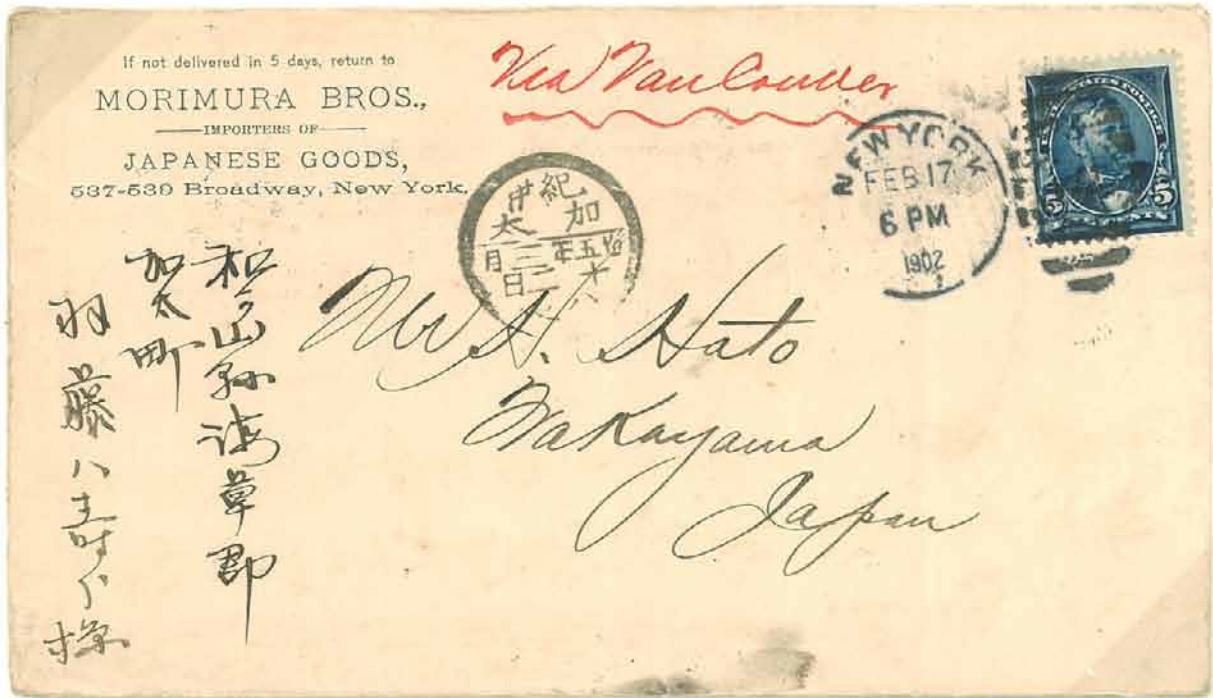 If not delivered in 5 days, return to
MORIMURA BROS.,
IMPORTERS OF
JAPANESE GOODS,
537-539 Broadway, New York.
Via Vancouver
NEW YORK
FEB 17
6 PM
1902
5 5
紀
加
太
五年
三月
二日
Mr H. Hato
Wakayama
Japan
和哥山縣海草郡
加太町
羽藤八
様